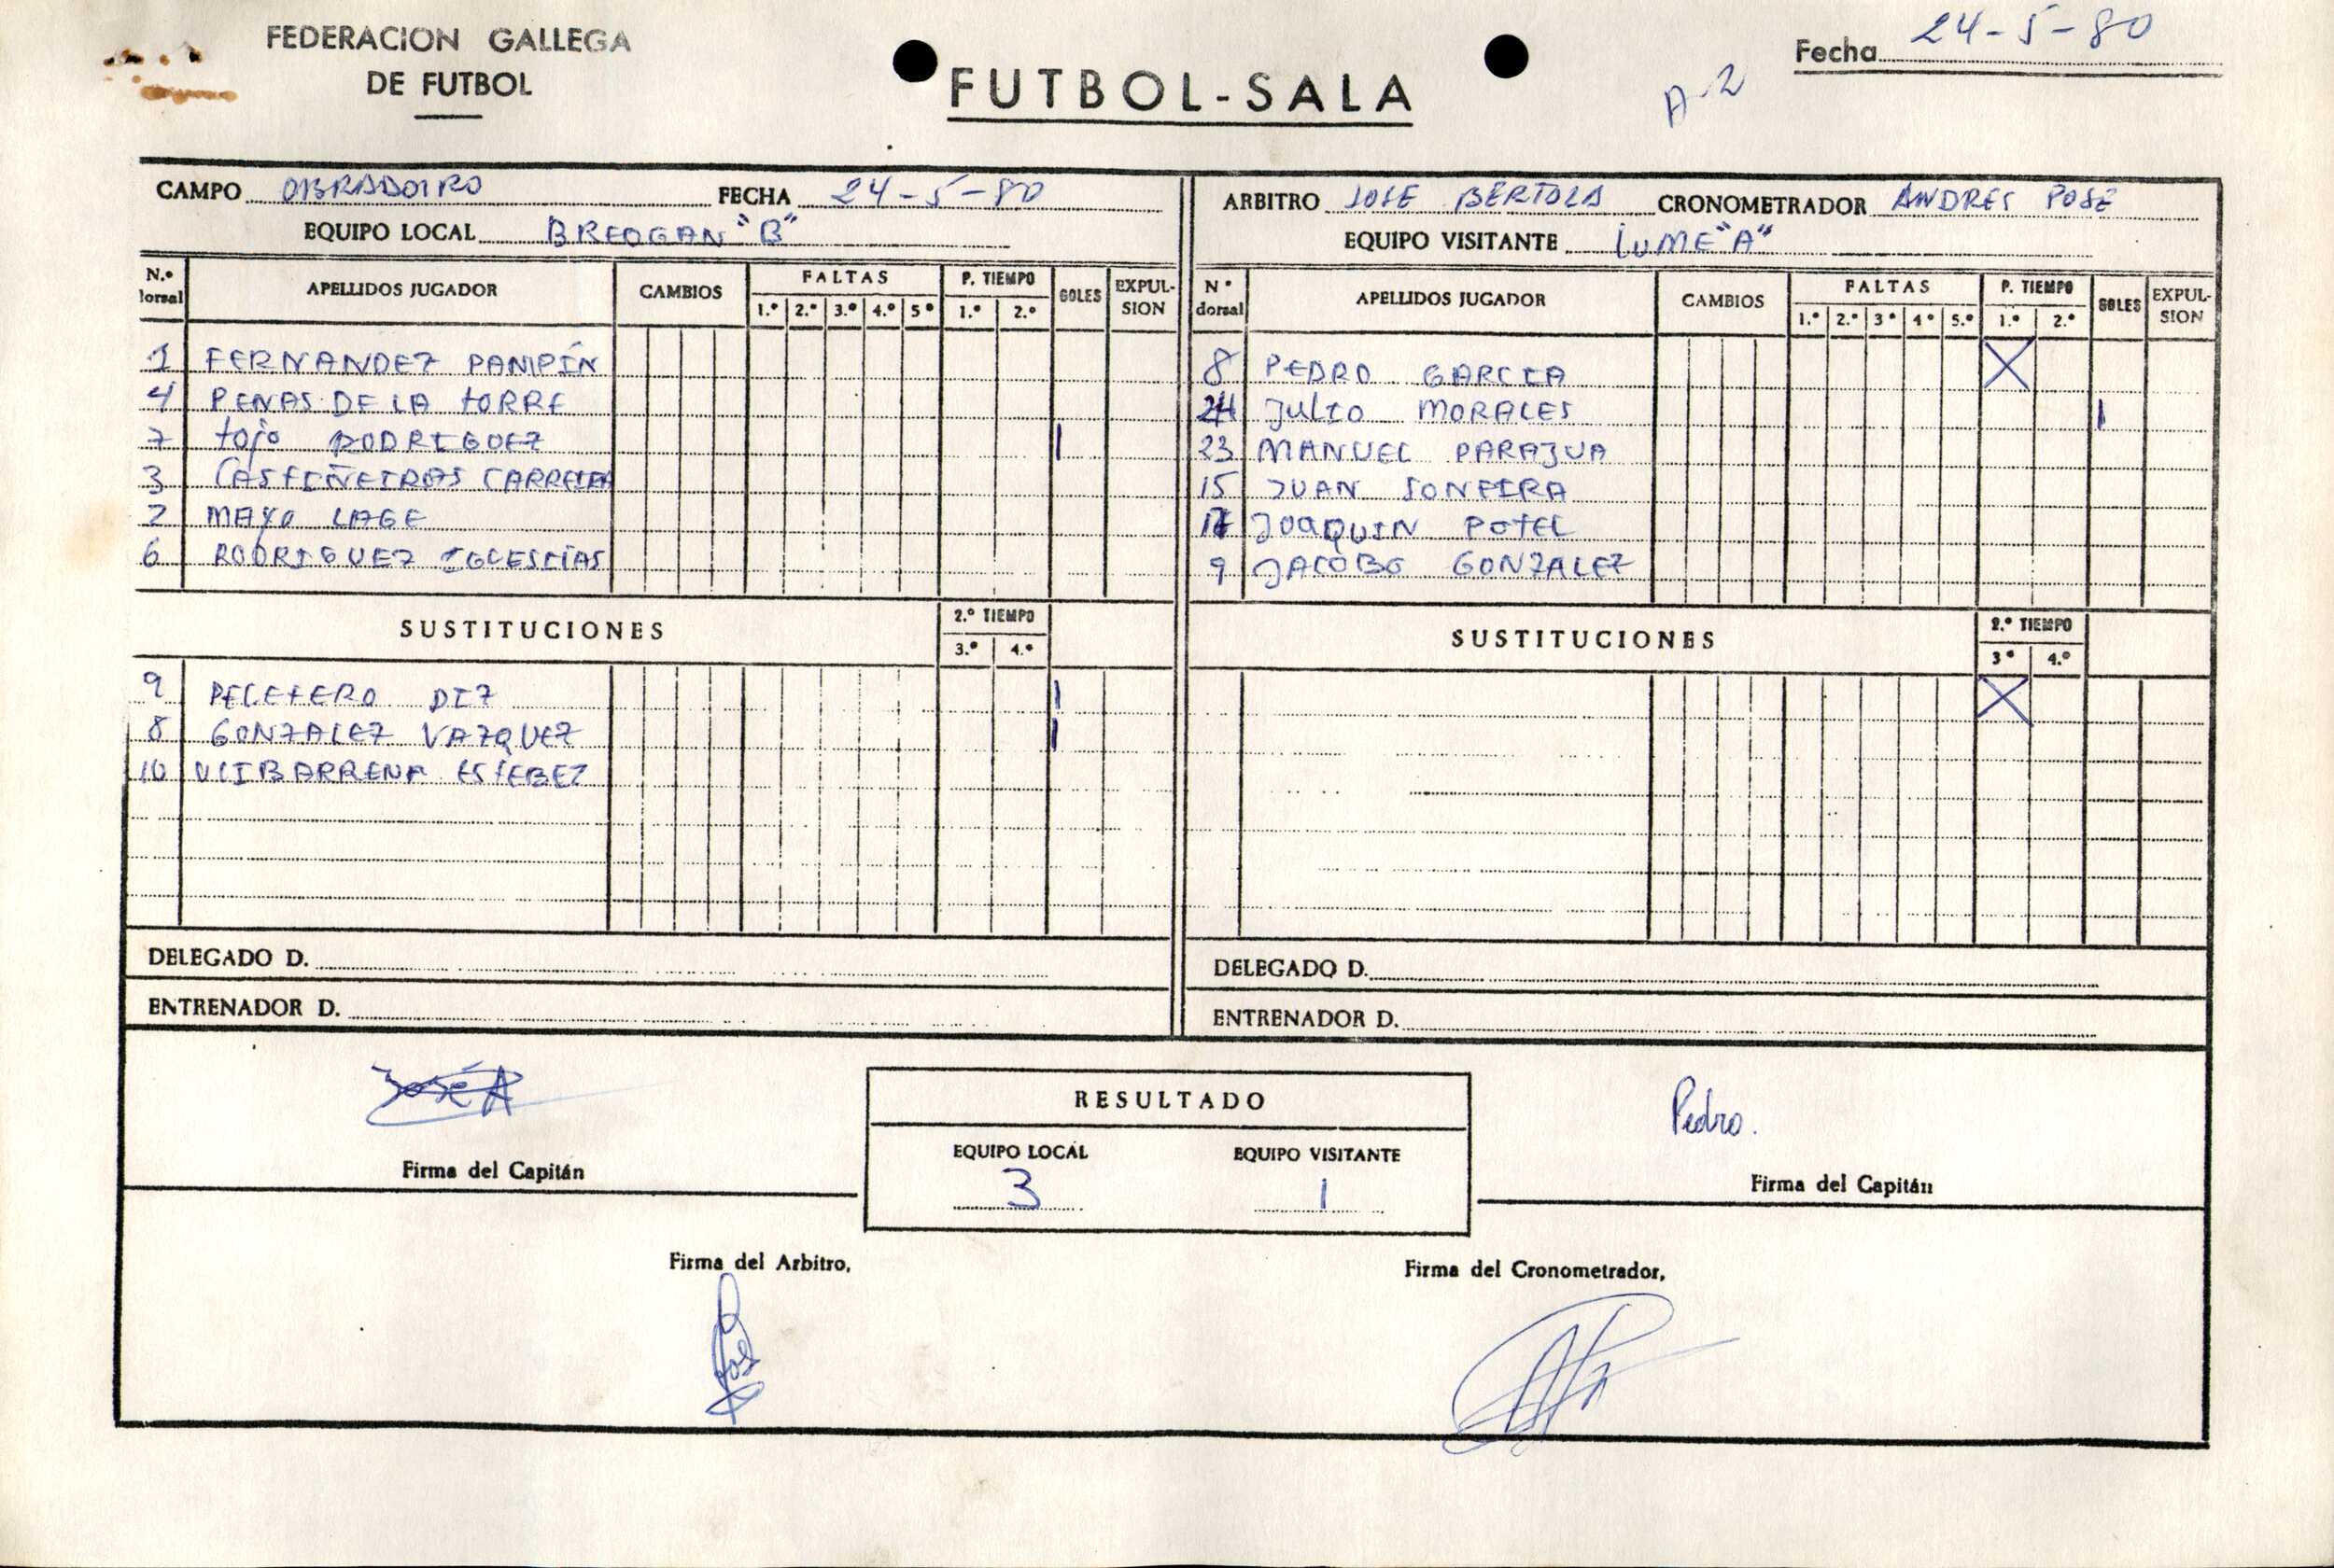 FEDERACION GALLEGA
DE FUTBOL
FUTBOL-SALA
Fecha 24-5-80
A-2
CAMPO OBRADOIRO FECHA 24-5-80
EQUIPO LOCAL BREOGAN "B"
N.º dorsal APELLIDOS JUGADOR CAMBIOS FALTAS 1.º 2.º 3.º 4.º 5º P. TIEMPO 1.º 2.º GOLES EXPULSION
1 FERNANDEZ PANIPÍN
4 PENAS DE LA TORRE
7 TOJO RODRIGUEZ 1
3 CASTIÑEIRAS
2 MAYO LAGE
6 RODRIGUEZ IGLESIAS
SUSTITUCIONES 2.º TIEMPO 3.º 4.º
9 PELETERO DIZ 1
8 GONZALEZ VAZQUEZ 1
10 ULIBARRENA ESTEBEZ
DELEGADO D.
ENTRENADOR D.
ARBITRO JOSE BERTOLA CRONOMETRADOR ANDRES POSE
EQUIPO VISITANTE LUME "A"
Nº dorsal APELLIDOS JUGADOR CAMBIOS FALTAS 1.º 2.º 3º 4º 5.º P. TIEMPO 1.º 2.º GOLES EXPULSION
8 PEDRO GARCIA X
JULIO MORALES 1
23 MANUEL PARAJUA
15 JUAN SONEIRA
JOAQUIN POTEL
9 JACOBO GONZALEZ
SUSTITUCIONES 2.º TIEMPO 3º 4.º
X
DELEGADO D.
ENTRENADOR D.
José A
Firma del Capitán
RESULTADO
EQUIPO LOCAL EQUIPO VISITANTE
3 1
Pedro.
Firma del Capitán
Firma del Arbitro,
Firma del Cronometrador,